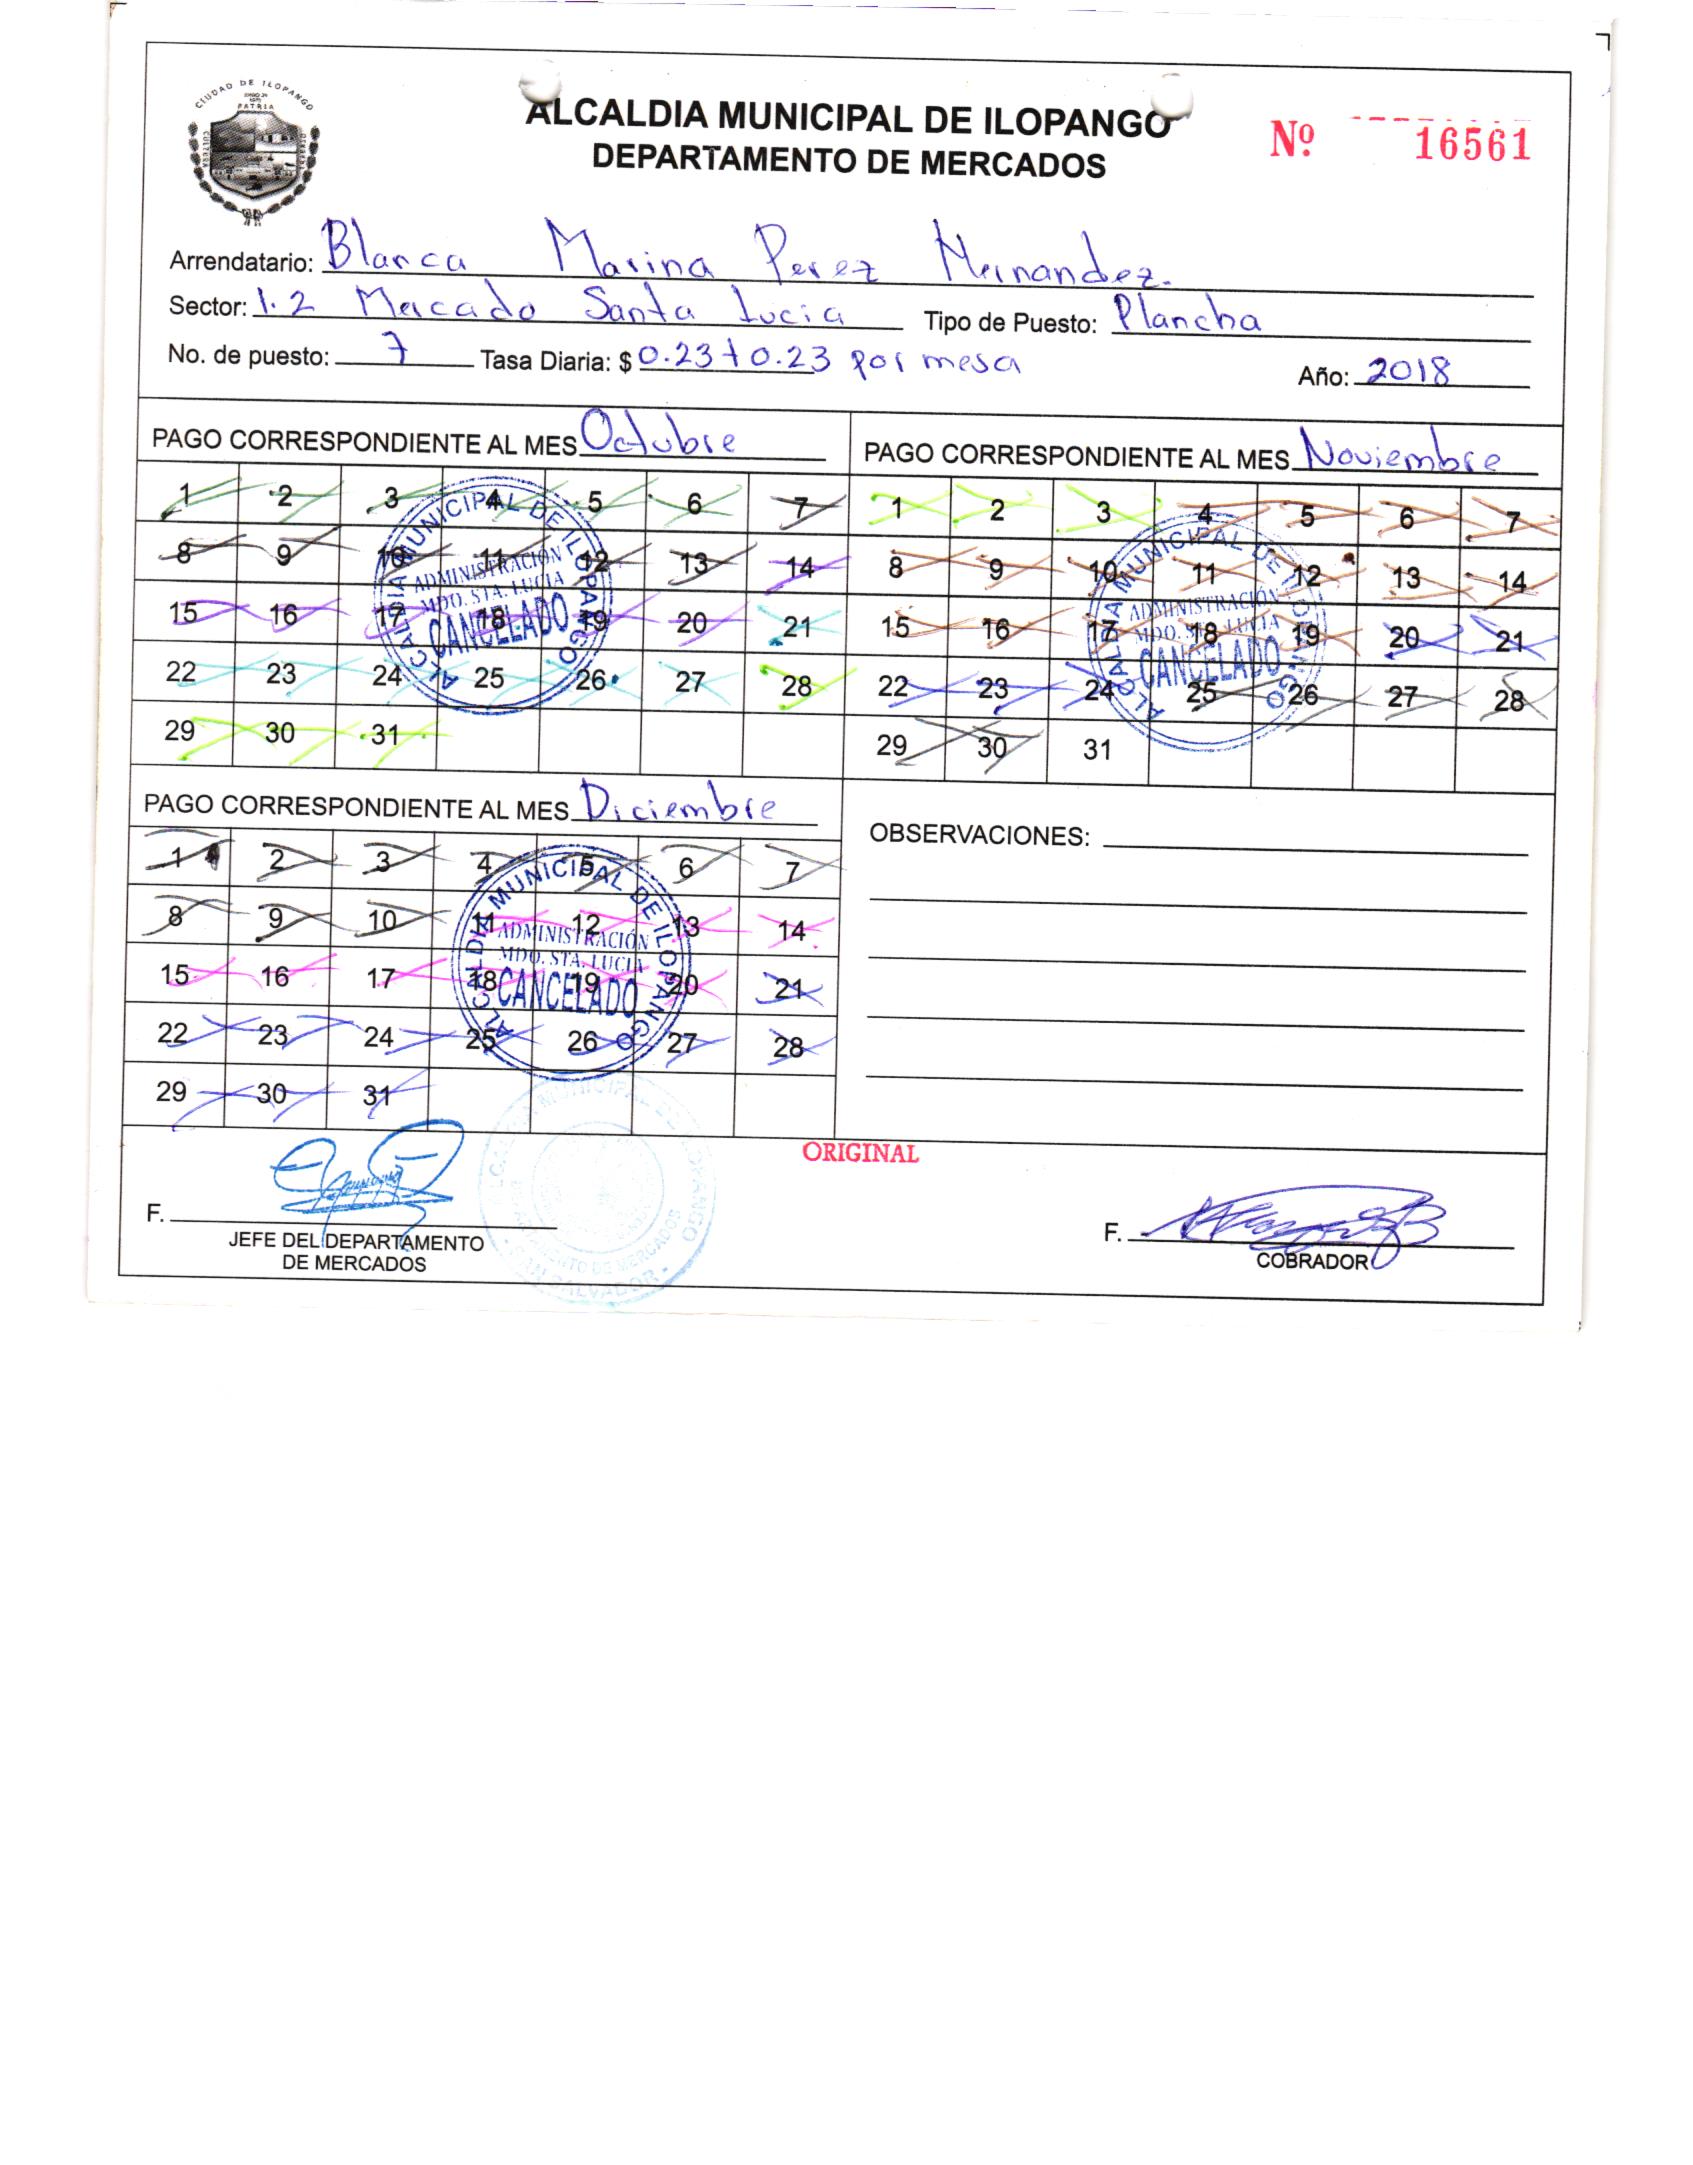 CIUDAD DE ILOPANGO
PATRIA
CULTURA
ALCALDIA MUNICIPAL DE ILOPANGO
DEPARTAMENTO DE MERCADOS
Nº 16561
Arrendatario: Blanca Marina Perez Hernandez.
Sector: 1.2 Mercado Santa Lucia Tipo de Puesto: Plancha
No. de puesto: 7 Tasa Diaria: $ 0.23 + 0.23 por mesa Año: 2018
PAGO CORRESPONDIENTE AL MES Octubre
1 2 3 4 5 6 7
8 9 10 11 12 13 14
15 16 17 18 19 20 21
22 23 24 25 26 27 28
29 30 31
ALCALDIA MUNICIPAL DE ILOPANGO
ADMINISTRACIÓN
MDO. STA. LUCIA
CANCELADO
PAGO CORRESPONDIENTE AL MES Noviembre
1 2 3 4 5 6 7
8 9 10 11 12 13 14
15 16 17 18 19 20 21
22 23 24 25 26 27 28
29 30 31
ALCALDIA MUNICIPAL DE ILOPANGO
ADMINISTRACIÓN
MDO. STA. LUCIA
CANCELADO
PAGO CORRESPONDIENTE AL MES Diciembre
1 2 3 4 5 6 7
8 9 10 11 12 13 14
15 16 17 18 19 20 21
22 23 24 25 26 27 28
29 30 31
ALCALDIA MUNICIPAL DE ILOPANGO
ADMINISTRACIÓN
MDO. STA. LUCIA
CANCELADO
OBSERVACIONES:
ORIGINAL
F.
JEFE DEL DEPARTAMENTO
DE MERCADOS
F.
COBRADOR